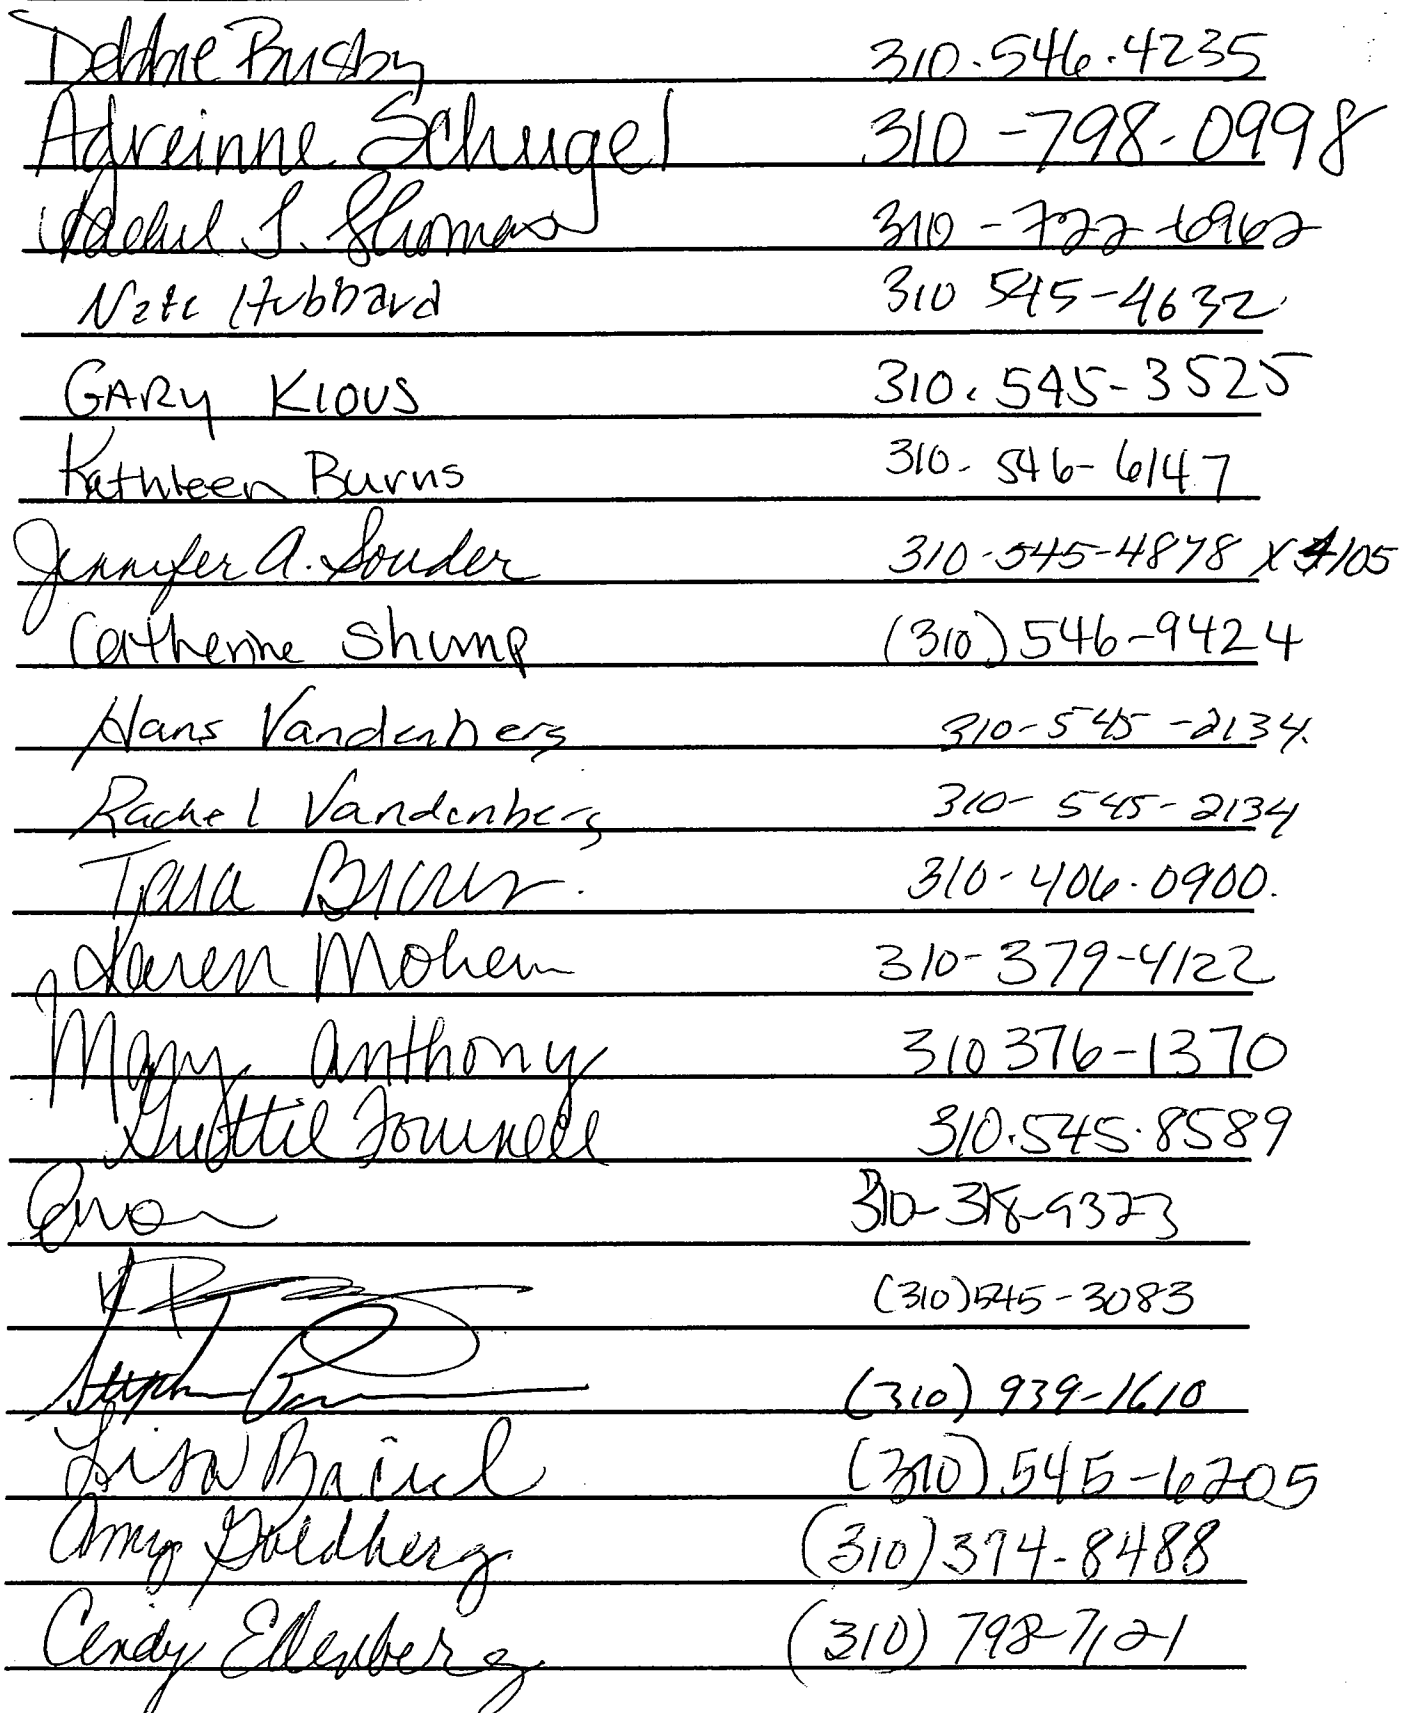 Debbie Busby 310.546.4235
Adreinne Schugel 310-798-0998
Rachel J. Thomas 310-722-6962
Nate Hubbard 310 545-4632
GARY KIOUS 310.545-3525
Kathleen Burns 310-546-6147
Jennifer A. Souder 310-545-4878 X 105
Catherine Shump (310) 546-9424
Hans Vandenberg 310-545-2134
Rachel Vandenberg 310-545-2134
Tara 310-406.0900.
Karen 310-379-4122
Mary Anthony 310 376-1370
310.545.8589
310-318-9323
(310)545-3083
(310) 939-1610
Lisa Baird (310) 545-6205
Amy Goldberg (310) 374-8488
Cindy Ellenberg (310) 798-7121